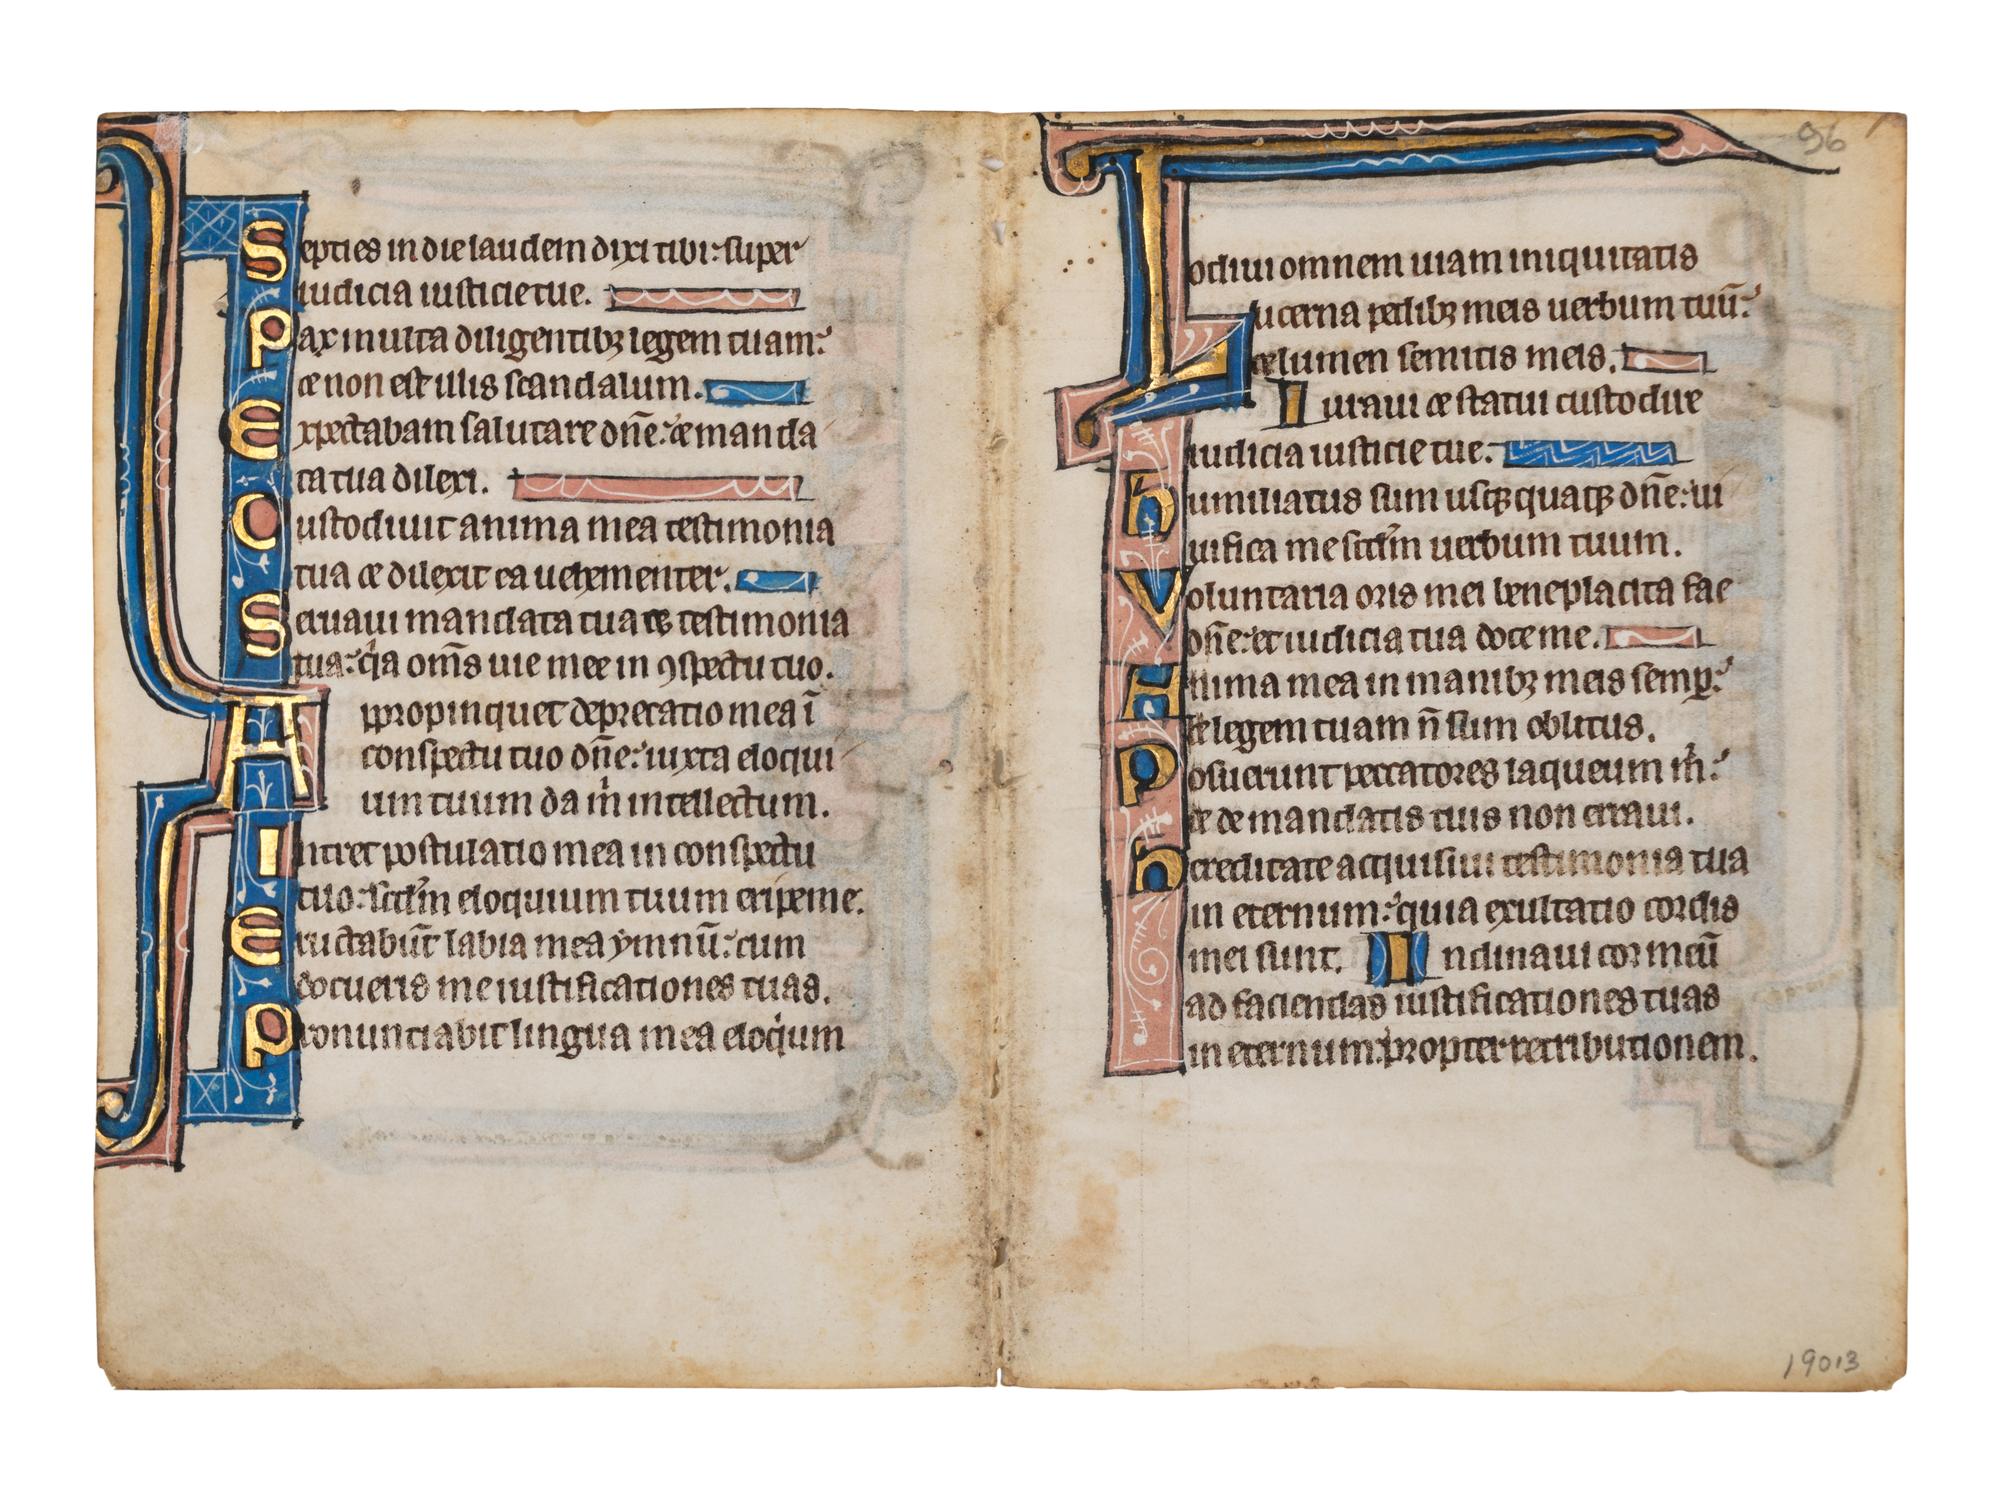 Septies in die laudem dixi tibi: super
iudicia iusticie tue.
Pax multa diligentibꝫ legem tuam:
⁊ non est illis scandalum.
Expectabam salutare dn̄e: ⁊ manda
ta tua dilexi.
Custodiuit anima mea testimonia
tua ⁊ dilexit ea uehementer.
Seruaui mandata tua ⁊ testimonia
tua: q̇a om̄s uie mee in ꝯspectu tuo.
Appropinquet deprecatio mea ī
conspectu tuo dn̄e: iuxta eloqui
um tuum da m̍ intellectum.
Intret postulatio mea in conspectu
tuo: scd̄m eloquium tuum eripe me.
Eructabūt labia mea ymnū: cum
docueris me iustificationes tuas.
Pronuntiabit lingua mea eloq̇um
96
odiui omnem uiam iniquitatis
Lucerna pedibꝫ meis uerbum tuū:
⁊ lumen semitis meis.
Iuraui ⁊ statui custodire
iudicia iusticie tue.
humiliatus sum usqꝫquaqꝫ dn̄e: ui
uifica me scd̄m uerbum tuum.
Voluntaria oris mei beneplacita fac
dn̄e: et iudicia tua doce me.
Anima mea in manibꝫ meis semꝑ:
⁊ legem tuam n̄ sum oblitus.
Posuerunt peccatores laqueum m̍:
⁊ de mandatis tuis non erraui.
hereditate acquisiui testimonia tua
in eternum: quia exultatio cordis
mei sunt. Inclinaui cor meū
ad faciendas iustificationes tuas
in eternum: propter retributionem.
19013